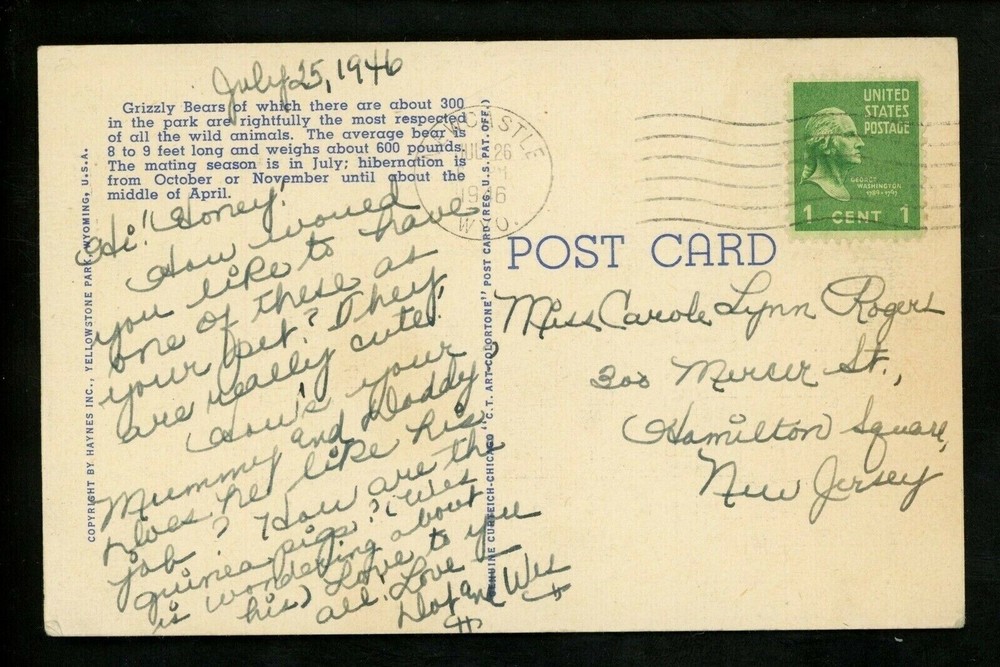 July 25, 1946
Grizzly Bears of which there are about 300
in the park are rightfully the most respected
of all the wild animals. The average bear is
8 to 9 feet long and weighs about 600 pounds.
The mating season is in July; hibernation is
from October or November until about the
middle of April.
Hi! "Honey!
How would
you like to have
one of these as
your pet? They
are really cute!
How's your
Mummy and Daddy?
Does he like his
job? How are the
guinea pigs? (Wes
is wondering about
his) Love to you
all. Love
Dot and Wes
COPYRIGHT BY HAYNES INC., YELLOWSTONE PARK, WYOMING, U.S.A.
GENUINE CURTEICH-CHICAGO "C.T. ART-COLORTONE" POST CARD (REG. U.S. PAT. OFF.)
NEWCASTLE
JUL 26
1946
WYO.
UNITED
STATES
POSTAGE
GEORGE
WASHINGTON
1789-1797
1 CENT 1
POST CARD
Miss Carole Lynn Rogers
Mercer St.,
Hamilton Square,
New Jersey